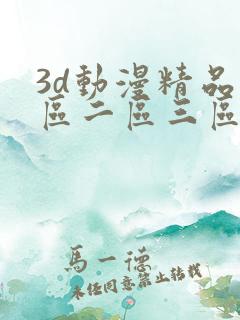 3d動漫精品
區二區三區
馬一德
未任同意禁止轉載